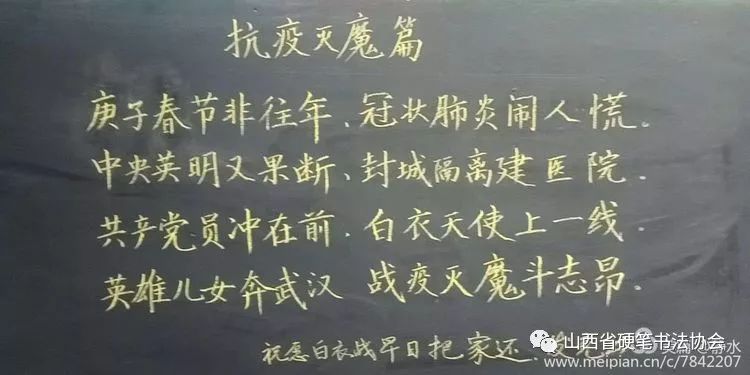 抗疫灭魔篇
庚子春节非往年、冠状肺炎闹人慌.
中央英明又果断、封城隔离建医院.
共产党员冲在前、白衣天使上一线.
英雄儿女奔武汉 战疫灭魔斗志昂.
祝愿白衣战早日把家还、
山西省硬笔书法协会
美篇@静水
www.meipian.cn/c/7842207